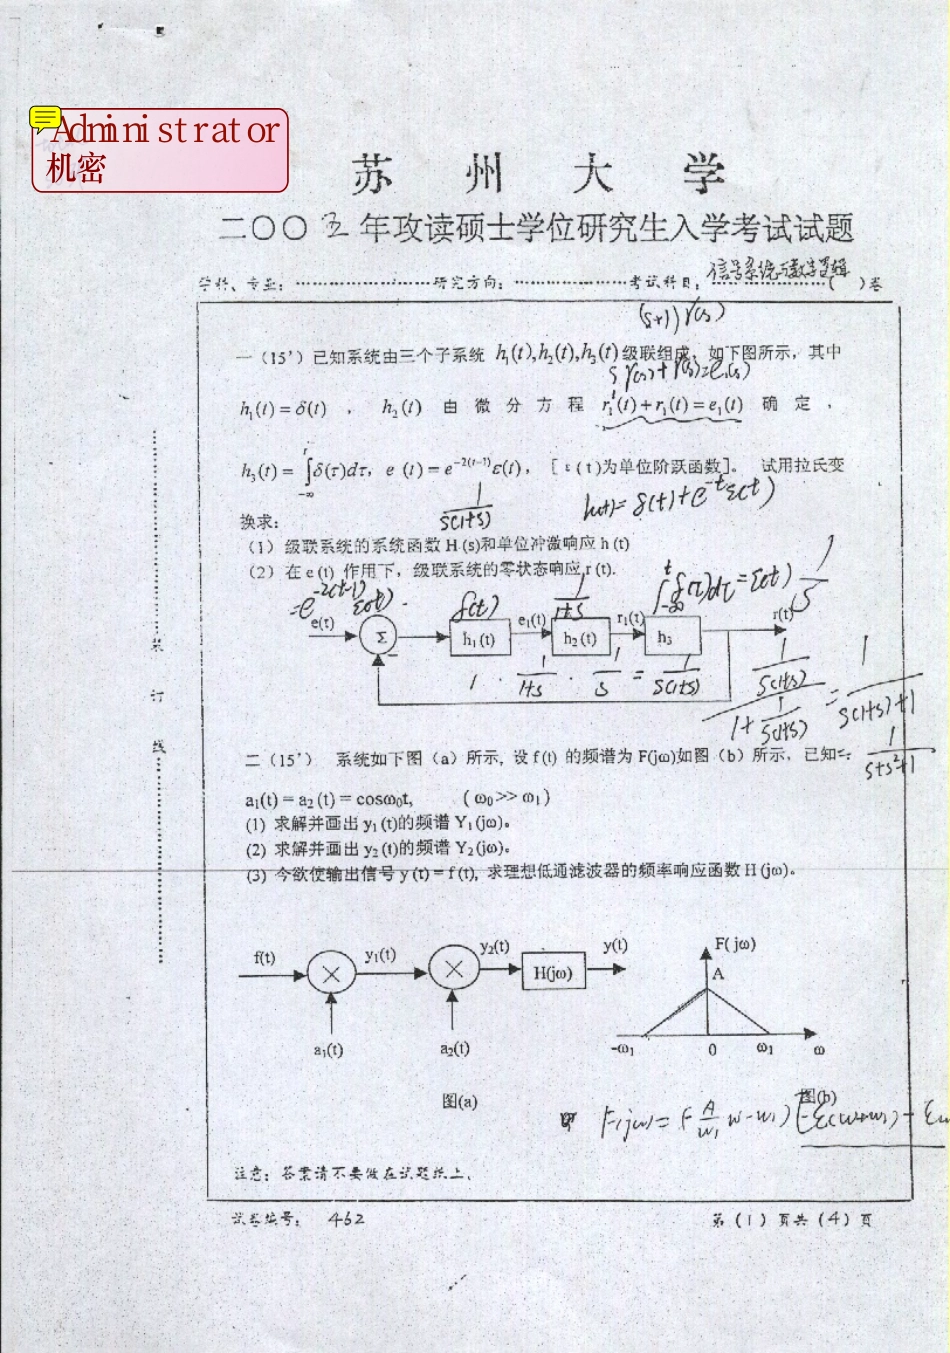 Administrator
机密
苏 州 大 学
二〇〇五年攻读硕士学位研究生入学考试试题
学科、专业：……………………研究方向：……………………考试科目：信号系统与数字逻辑( )卷
(s+1) r(s)
一（15’）已知系统由三个子系统 h₁(t),h₂(t),h₃(t)级联组成，如下图所示，其中
s r(s)+r(s)=e₁(s)
h₁(t)=δ(t) ， h₂(t) 由 微 分 方 程 r₁'(t)+r₁(t)=e₁(t) 确 定 ，
h₃(t)=∫_{-∞}^{t}δ(τ)dτ，e (t)=e^{-2(t-1)}ε(t)，［ε(t)为单位阶跃函数］。 试用拉氏变
1/s(1+s) h(t)=δ(t)+e^{-t}ε(t)
换求：
(1) 级联系统的系统函数 H (s)和单位冲激响应 h (t)
(2) 在 e (t) 作用下，级联系统的零状态响应 r (t).
=e^{-2(t-1)}ε(t). δ(t) 1/1+s ∫_{-∞}^{t}δ(τ)dτ=ε(t) 1/s
e(t) Σ − h₁(t) e₁(t) h₂(t) r₁(t) h₃ r(t)
1 · 1/1+s · 1/s = 1/s(1+s)
1/s(1+s) / 1+1/s(1+s) = 1/s(1+s)+1
1/s+s²+1
二（15’） 系统如下图（a）所示, 设 f (t) 的频谱为 F(jω)如图（b）所示，已知:
a₁(t) = a₂ (t) = cosω₀t, ( ω₀>> ω₁ )
(1) 求解并画出 y₁ (t)的频谱 Y₁ (jω)。
(2) 求解并画出 y₂ (t)的频谱 Y₂ (jω)。
(3) 今欲使输出信号 y (t) = f (t), 求理想低通滤波器的频率响应函数 H (jω)。
f(t) y₁(t) y₂(t) H(jω) y(t) F( jω)
A
a₁(t) a₂(t) -ω₁ 0 ω₁ ω
图(a) 图(b)
F(jω)=
注意：答案请不要做在试题纸上。
试卷编号： 462 第（1）页共（4）页